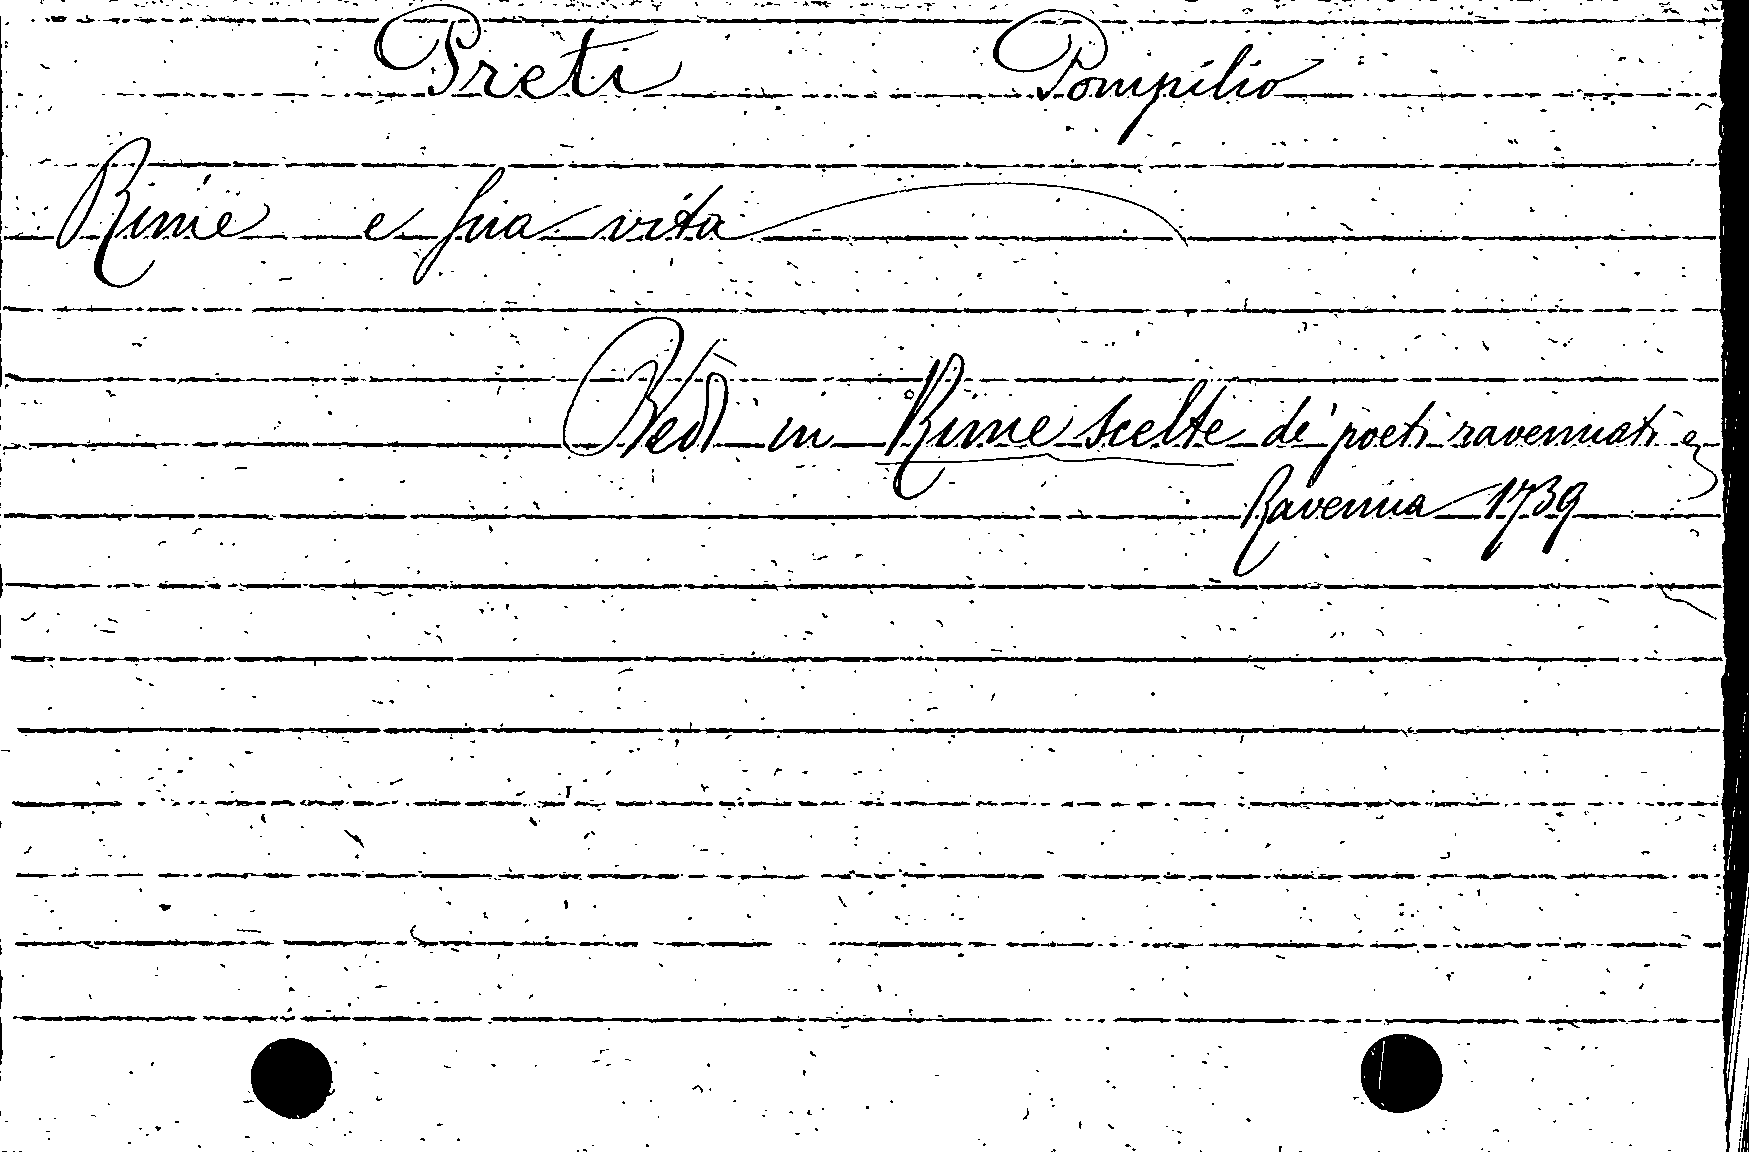 Preti Pompilio
Rime e sua vita
Vedi in Rime scelte de' poeti ravennati
Ravenna 1739